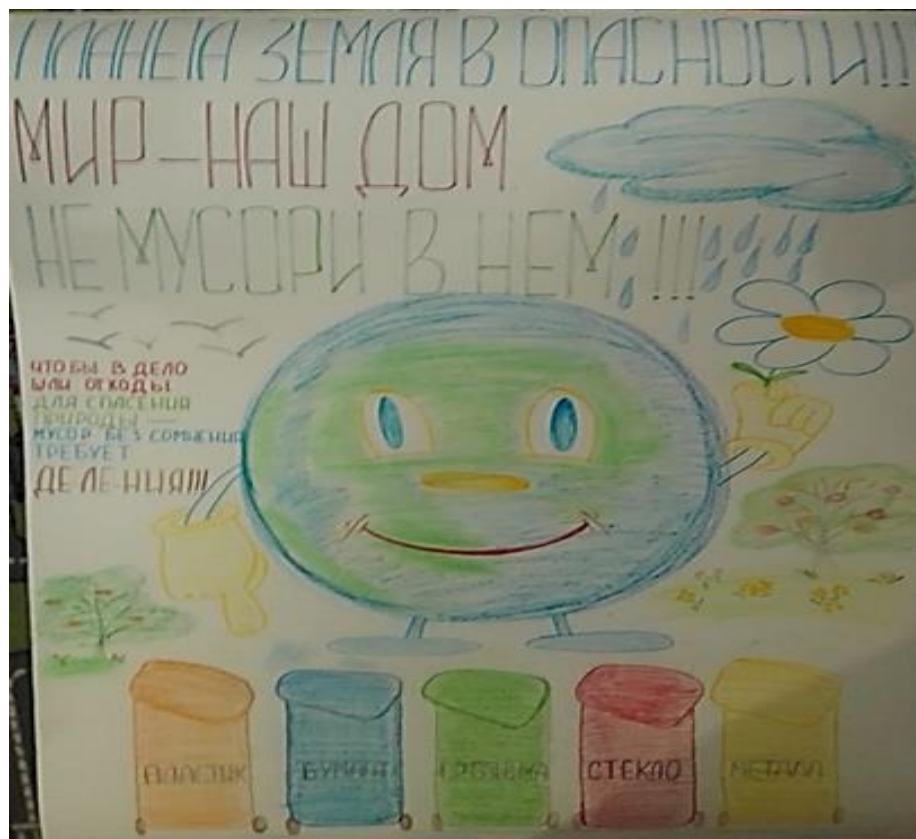 ПЛАНЕТА ЗЕМЛЯ В ОПАСНОСТИ!!
МИР-НАШ ДОМ
НЕ МУСОРИ В НЕМ!!!
ЧТОБЫ В ДЕЛО
ШЛИ ОТХОДЫ
ДЛЯ СПАСЕНИЯ
ПРИРОДЫ —
МУСОР БЕЗ СОМНЕНИЯ
ТРЕБУЕТ
ДЕЛЕНИЯ!!!
ПЛАСТИК
БУМАГА
СТЕКЛО
МЕТАЛЛ